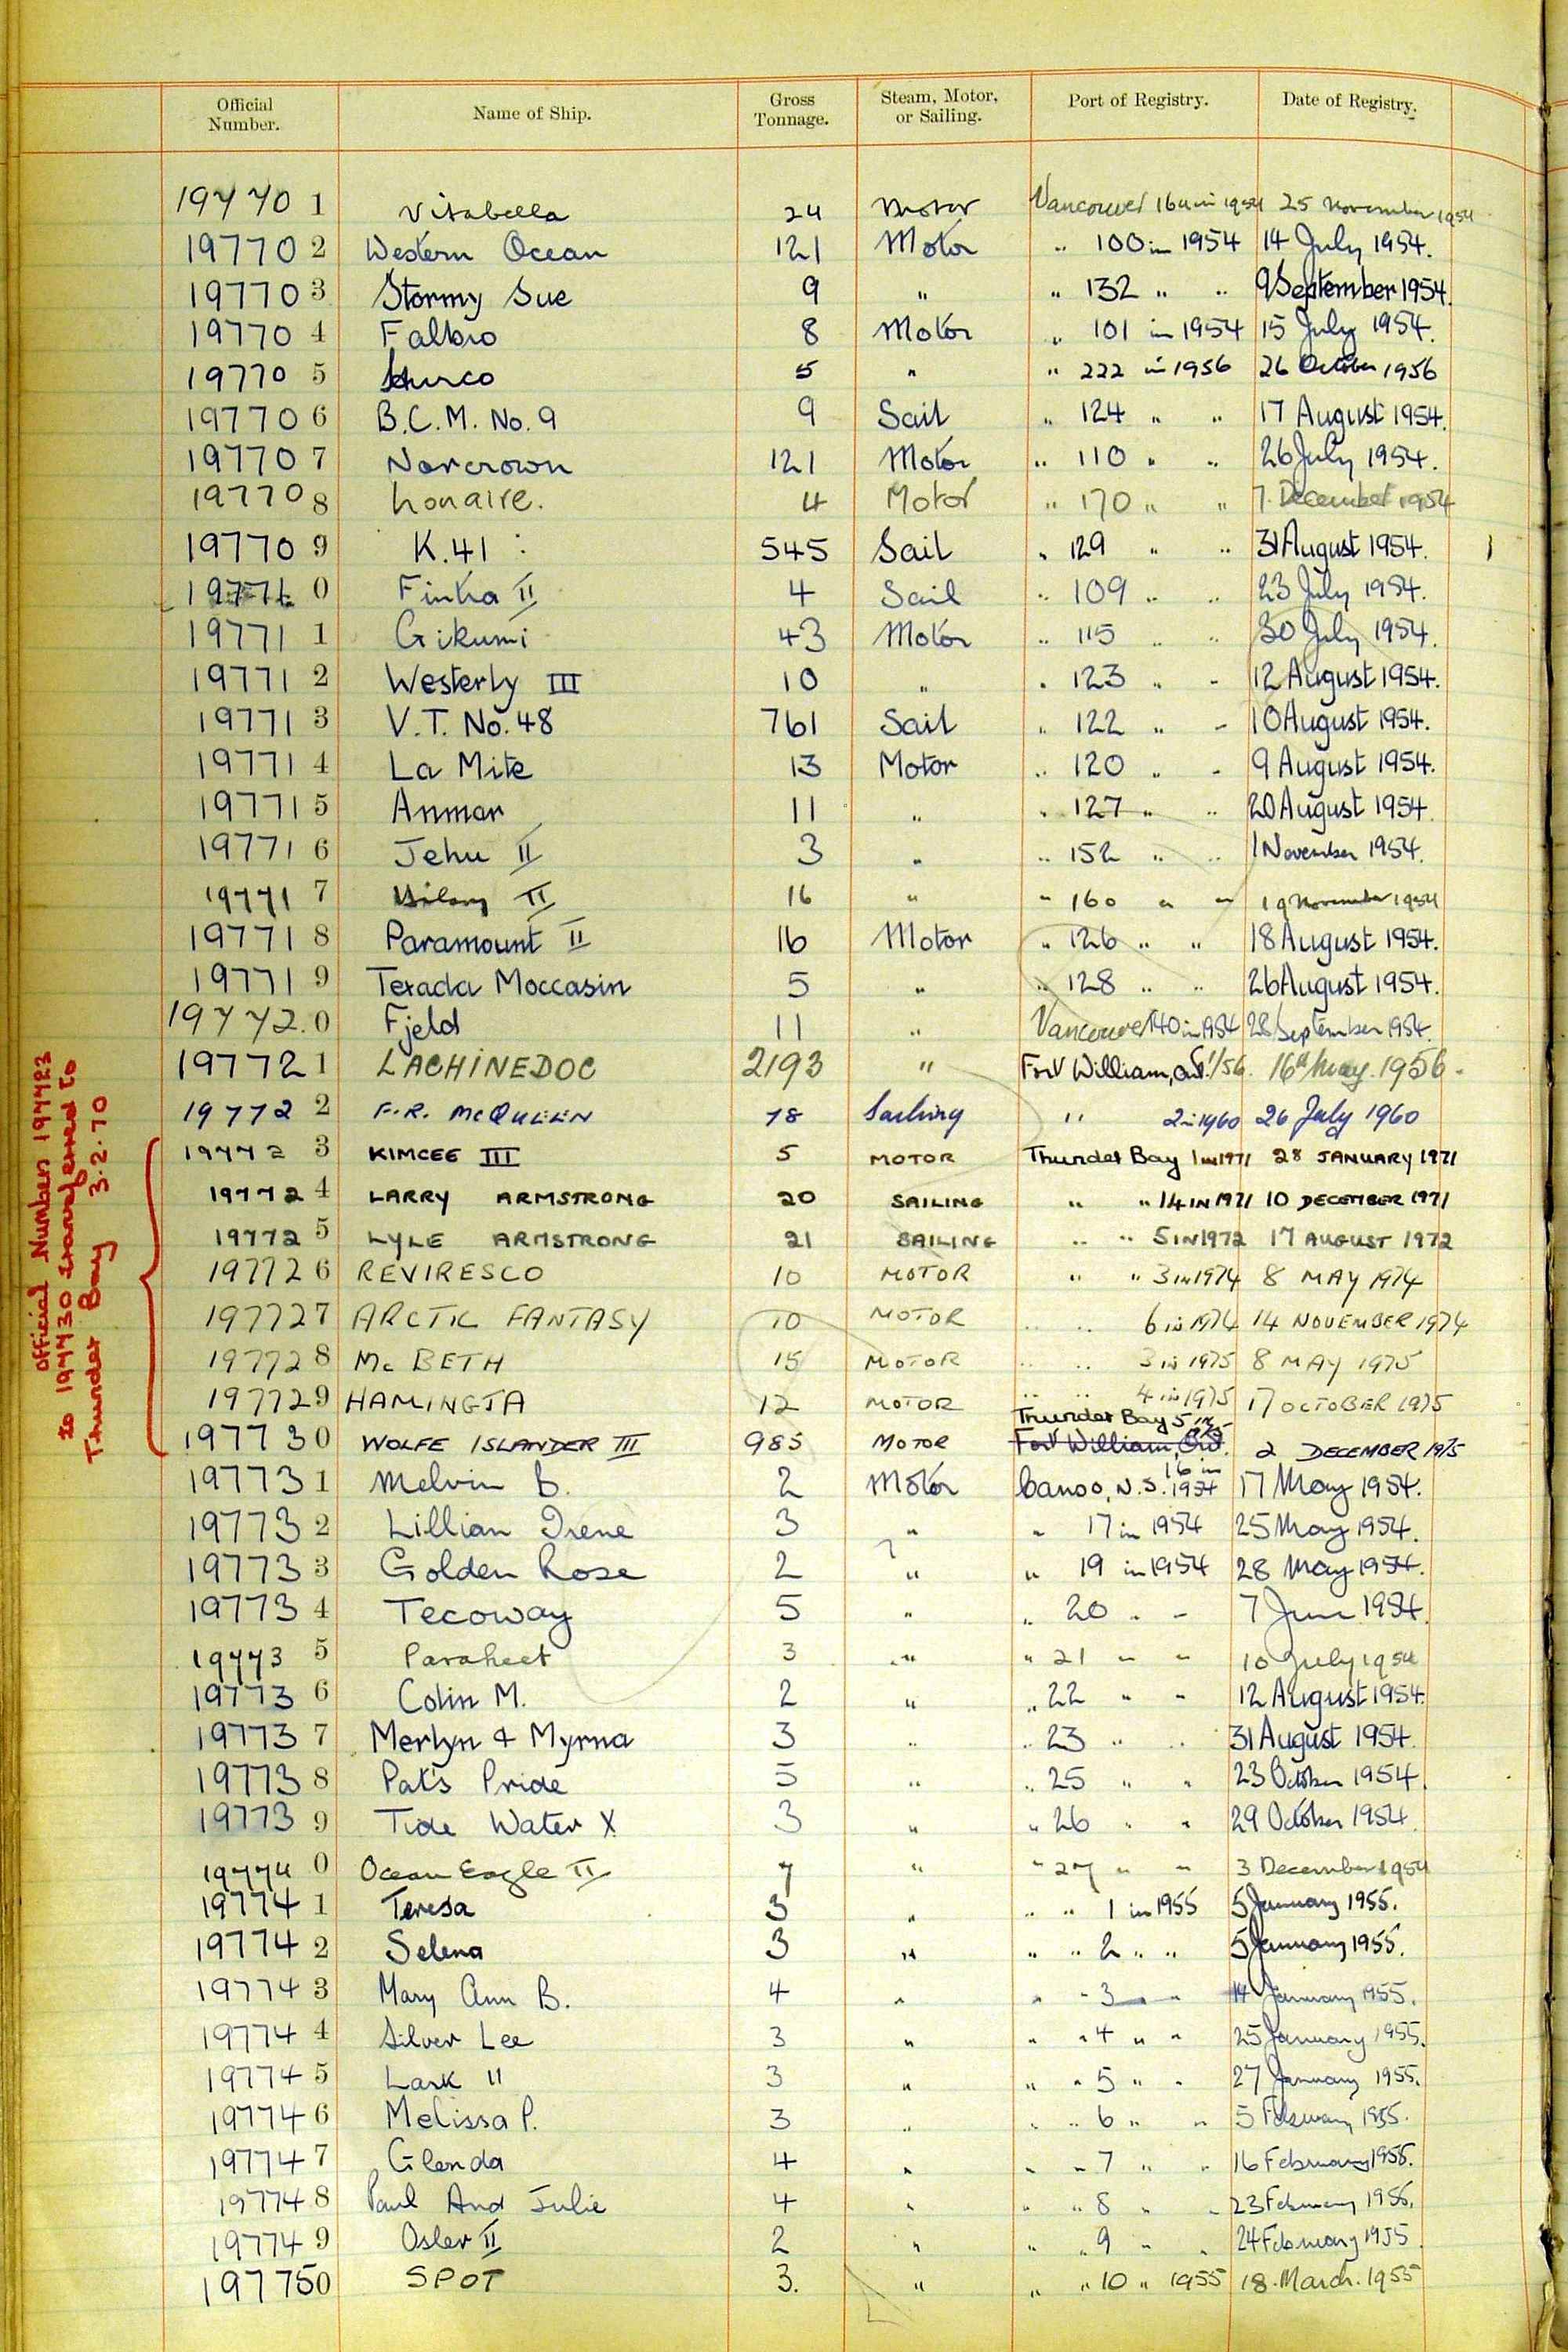 Official Number. Name of Ship. Gross Tonnage. Steam, Motor, or Sailing. Port of Registry. Date of Registry.
197701 Vitabella 24 Motor Vancouver 164 in 1954 25 November 1954
197702 Western Ocean 121 Motor " 100 in 1954 14 July 1954.
197703 Stormy Sue 9 " " 132 " " 9 September 1954.
197704 Falbro 8 Motor " 101 in 1954 15 July 1954.
197705 5 " " 222 in 1956 26 October 1956
197706 B.C.M. No. 9 9 Sail " 124 " " 17 August 1954.
197707 Norcrown 121 Motor " 110 " " 26 July 1954.
197708 Lonaire. 4 Motor " 170 " " 7 December 1954
197709 K.41 545 Sail " 129 " " 31 August 1954.
197710 Finka II 4 Sail " 109 " " 23 July 1954.
197711 Gikumi 43 Motor " 115 " " 30 July 1954.
197712 Westerly III 10 " " 123 " " 12 August 1954.
197713 V.T. No. 48 761 Sail " 122 " " 10 August 1954.
197714 La Mite 13 Motor " 120 " " 9 August 1954.
197715 Anmar 11 " " 127 " " 20 August 1954.
197716 Jehu II 3 " " 152 " " 1 November 1954.
197717 II 16 " " 160 " " 19 November 1954
197718 Paramount II 16 Motor " 126 " " 18 August 1954.
197719 Texada Moccasin 5 " " 128 " " 26 August 1954.
197720 Fjeld 11 " Vancouver 140 in 1954 28 September 1954.
197721 LACHINEDOC 2193 " Fort William, Ont. 1/56. 16th May. 1956.
197722 F.R. McQUEEN 78 Sailing " 2 in 1960 26 July 1960
197723 KIMCEE III 5 MOTOR Thunder Bay 1 in 1971 28 JANUARY 1971
197724 LARRY ARMSTRONG 20 SAILING " " 14 IN 1971 10 DECEMBER 1971
197725 LYLE ARMSTRONG 21 SAILING " " 5 IN 1972 17 AUGUST 1972
197726 REVIRESCO 10 MOTOR " " 3 in 1974 8 MAY 1974
197727 ARCTIC FANTASY 10 MOTOR " " 6 in 1974 14 NOVEMBER 1974
197728 Mc BETH 15 MOTOR " " 3 in 1975 8 MAY 1975
197729 HAMINGJA 12 MOTOR " " 4 in 1975 17 OCTOBER 1975
Thunder Bay 5 in 1975
197730 WOLFE ISLANDER III 985 MOTOR Fort William, Ont. 2 DECEMBER 1975
Official Numbers 197723
to 197730 transferred to
Thunder Bay 3.2.70
197731 Melvin B. 2 Motor Canso, N.S. 16 in 1954 17 May 1954.
197732 Lillian Irene 3 " " 17 in 1954 25 May 1954.
197733 Golden Rose 2 " " 19 in 1954 28 May 1954.
197734 Tecoway 5 " " 20 " " 7 June 1954.
197735 Paraheet 3 " " 21 " " 10 July 1954
197736 Colin M. 2 " " 22 " " 12 August 1954.
197737 Merlyn & Myrna 3 " " 23 " " 31 August 1954.
197738 Pat's Pride 5 " " 25 " " 23 October 1954.
197739 Tide Water X 3 " " 26 " " 29 October 1954.
197740 Ocean Eagle II 7 " " 27 " " 3 December 1954
197741 Teresa 3 " " " 1 in 1955 5 January 1955.
197742 Selena 3 " " " 2 " " 5 January 1955.
197743 Mary Ann B. 4 " " " 3 " " 14 January 1955.
197744 Silver Lee 3 " " " 4 " " 25 January 1955.
197745 Lark II 3 " " " 5 " " 27 January 1955.
197746 Melissa P. 3 " " " 6 " " 5 February 1955.
197747 Glenda 4 " " " 7 " " 16 February 1955.
197748 Paul And Julie 4 " " " 8 " " 23 February 1955.
197749 Osler II 2 " " " 9 " " 24 February 1955
197750 SPOT 3. " " " 10 " 1955 18. March. 1955